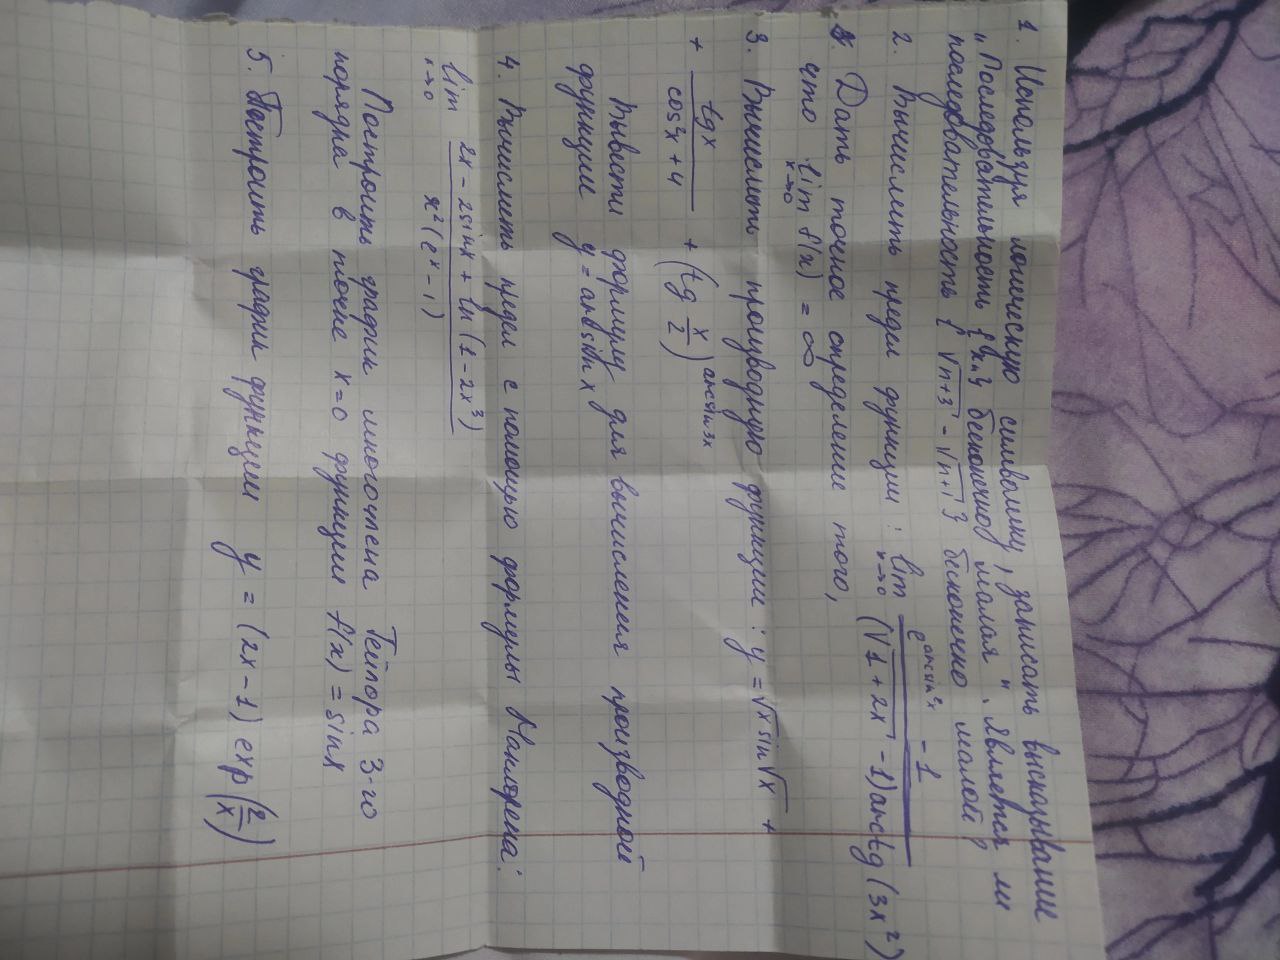 1. Используя логическую символику, записать высказывание
"Последовательность {xₙ} бесконечно малая". Является ли
последовательность { √(n+3) - √(n+1) } бесконечно малой?
2. Вычислить предел функции: lim x→0 (e^(arcsin²x) - 1) / ((√(1+2x) - 1) arctg(3x²))
Дать точное определение того,
что lim x→0 f(x) = ∞
3. Вычислить производную функции: y = √x sin√x +
+ tgx / (cos²x + 4) + (tg x/2)^(arcsin3x)
Вывести формулу для вычисления производной
функции y = arcsin x
4. Вычислить предел с помощью формулы Маклорена:
lim x→0 (2x - 2sinx + ln(1 - 2x³)) / (x²(eˣ - 1))
Построить график многочлена Тейлора 3-го
порядка в точке x=0 функции f(x) = sinx
5. Построить график функции y = (2x - 1) exp(2/x)